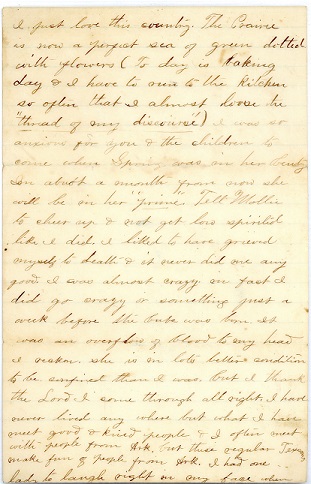 I just love this country. The Prairie
is now a perfect sea of green dotted
with flowers (To day is baking
day & I have to run to the kitchen
so often that I almost loose the
"thread of my discourse") I was so
anxious for you & the children to
come when Spring was in her beauty
In about a month from now she
will be in her "prime". Tell Mollie
to cheer up & not get low spirited
like I did. I liked to have grieved
myself to death & it never did me any
good. I was almost crazy in fact I
did go crazy or something just a
week before the babe was born. It
was an overflow of blood to my head
I reckon. She is in lots better condition
to be confined than I was. But I thank
the Lord I come through all right. I have
never lived any where but what I have
meet good & kind people & I often meet
with people from Ark. but these regular Texans
make fun of people from Ark. I had one
lady to laugh right in my face when